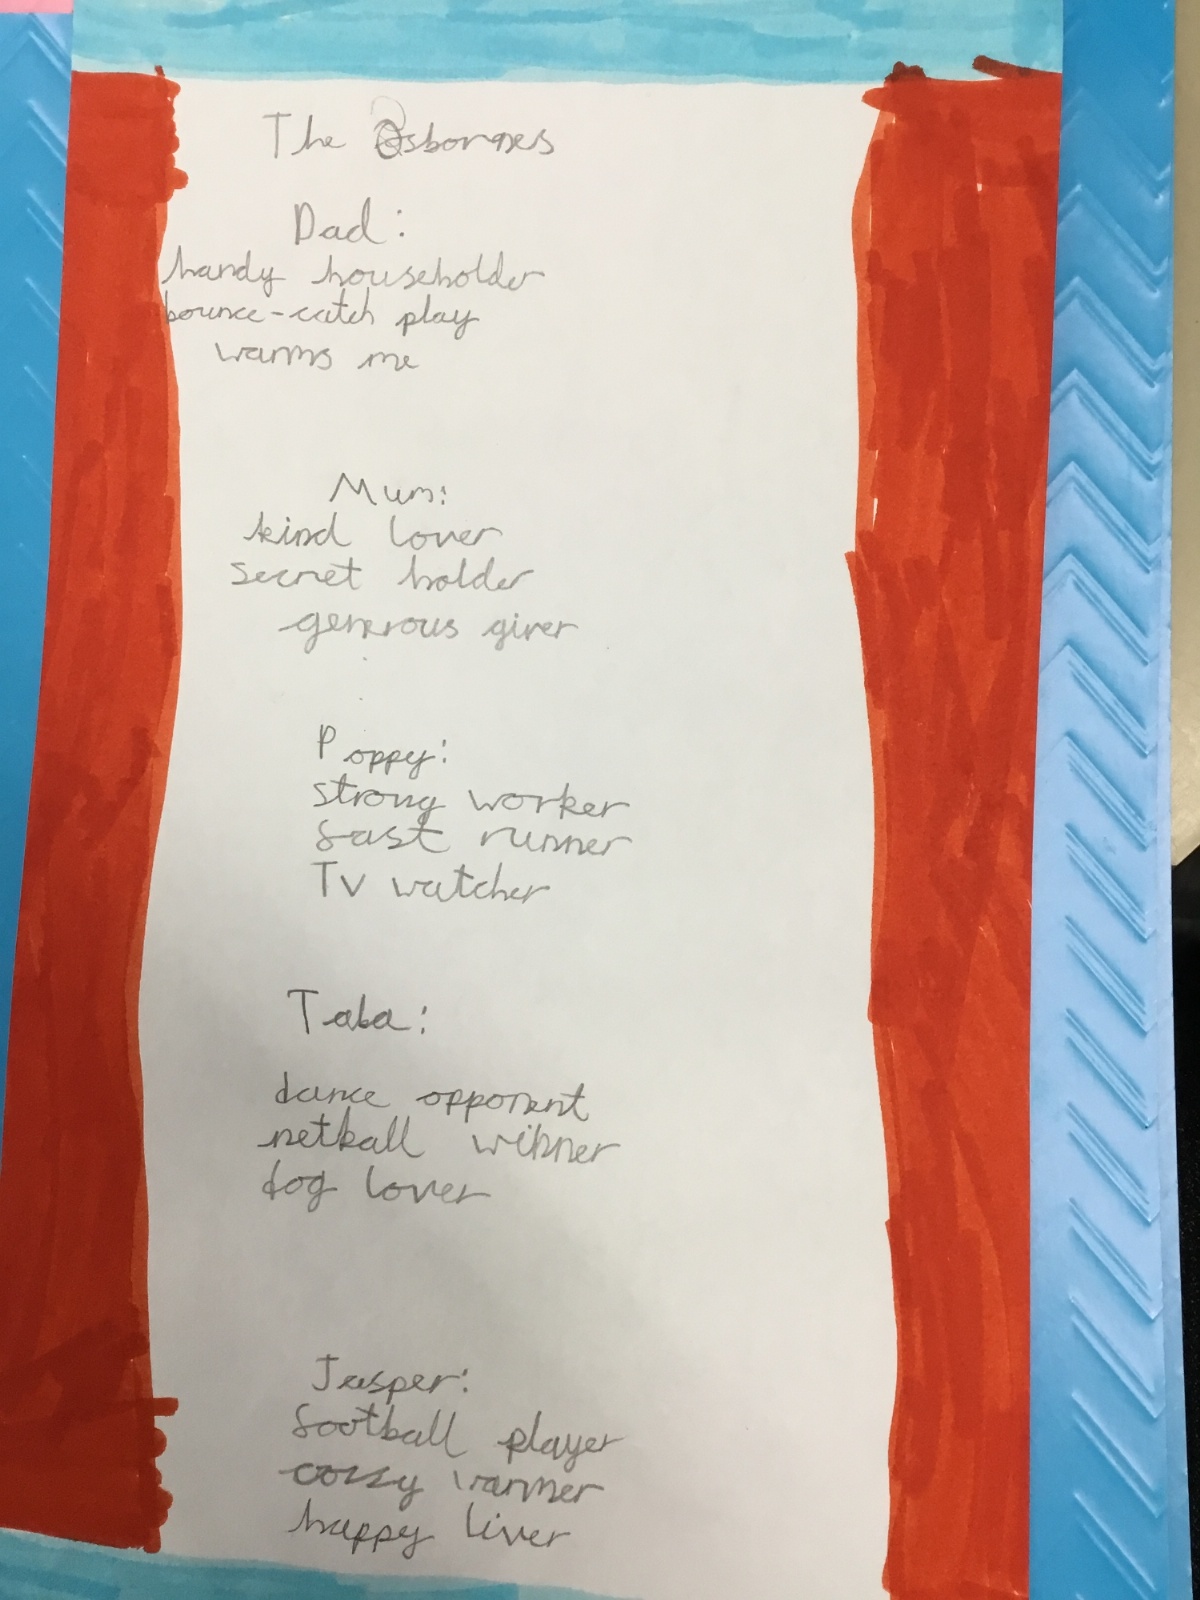 The Osbornes
Dad:
handy householder
bounce-catch play
warms me
Mum:
kind lover
secret holder
generous giver
Poppy:
strong worker
fast runner
TV watcher
Taba:
dance opponent
netball winner
dog lover
Jasper:
football player
cozzy warmer
happy liver